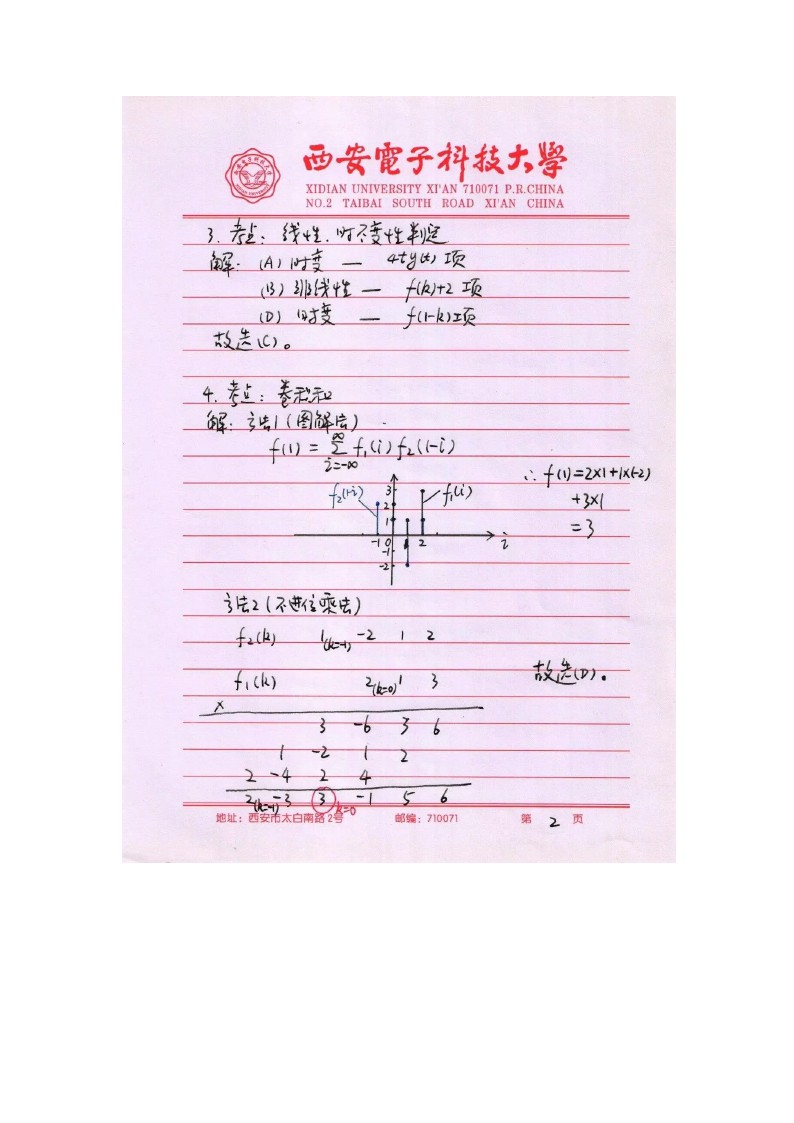 西安電子科技大學
XIDIAN UNIVERSITY XI'AN 710071 P.R.CHINA
NO.2 TAIBAI SOUTH ROAD XI'AN CHINA
3. 考点: 线性、时不变性判定
解: (A) 时变 — 4ty(t) 项
(B) 非线性 — f(k)+2 项
(D) 时变 — f(1-k)项
故选(C)。
4. 考点: 卷积和
解: 方法1 (图解法)
f(1) = ∑ f₁(i) f₂(1-i)
i=-∞
∞
∴ f(1)=2×1+1×(-2)
+3×1
=3
f₂(1-i)
f₁(i)
3
2
1
-1 0 1 2 i
-1
-2
方法2 (不进位乘法)
f₂(k) 1(k=-1) -2 1 2
f₁(k) 2(k=0) 1 3
故选(D)。
×
3 -6 3 6
1 -2 1 2
2 -4 2 4
2(k=-1) -3 3 -1 5 6
k=0
地址: 西安市太白南路2号 邮编: 710071 第 2 页